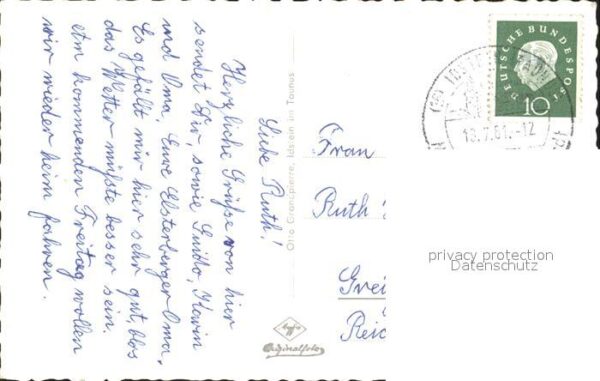 Liebe Ruth!
Herzliche Grüße von hier
sendet Dir, sowie Guido, Herrin
und Oma, Euere Elsterberger Oma.
Es gefällt mir hier sehr gut, blos
das Wetter müßte besser sein.
Am kommenden Freitag wollen
wir wieder heim fahren.
Otto Cronsperre, Idstein im Taunus
Agfa
Originalfoto
DEUTSCHE BUNDESPOST
10
18.7.61.-12
Frau
Ruth
Grei
Reic
privacy protection
Datenschutz